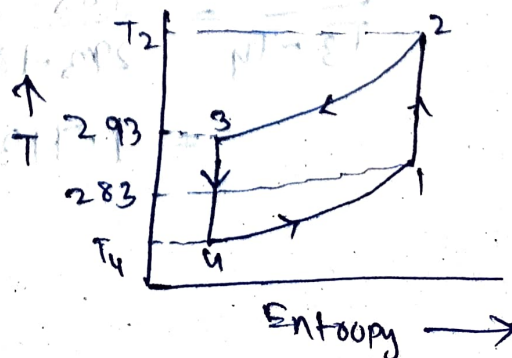 T2
2
↑
T
293
3
283
1
T4
4
Entropy →